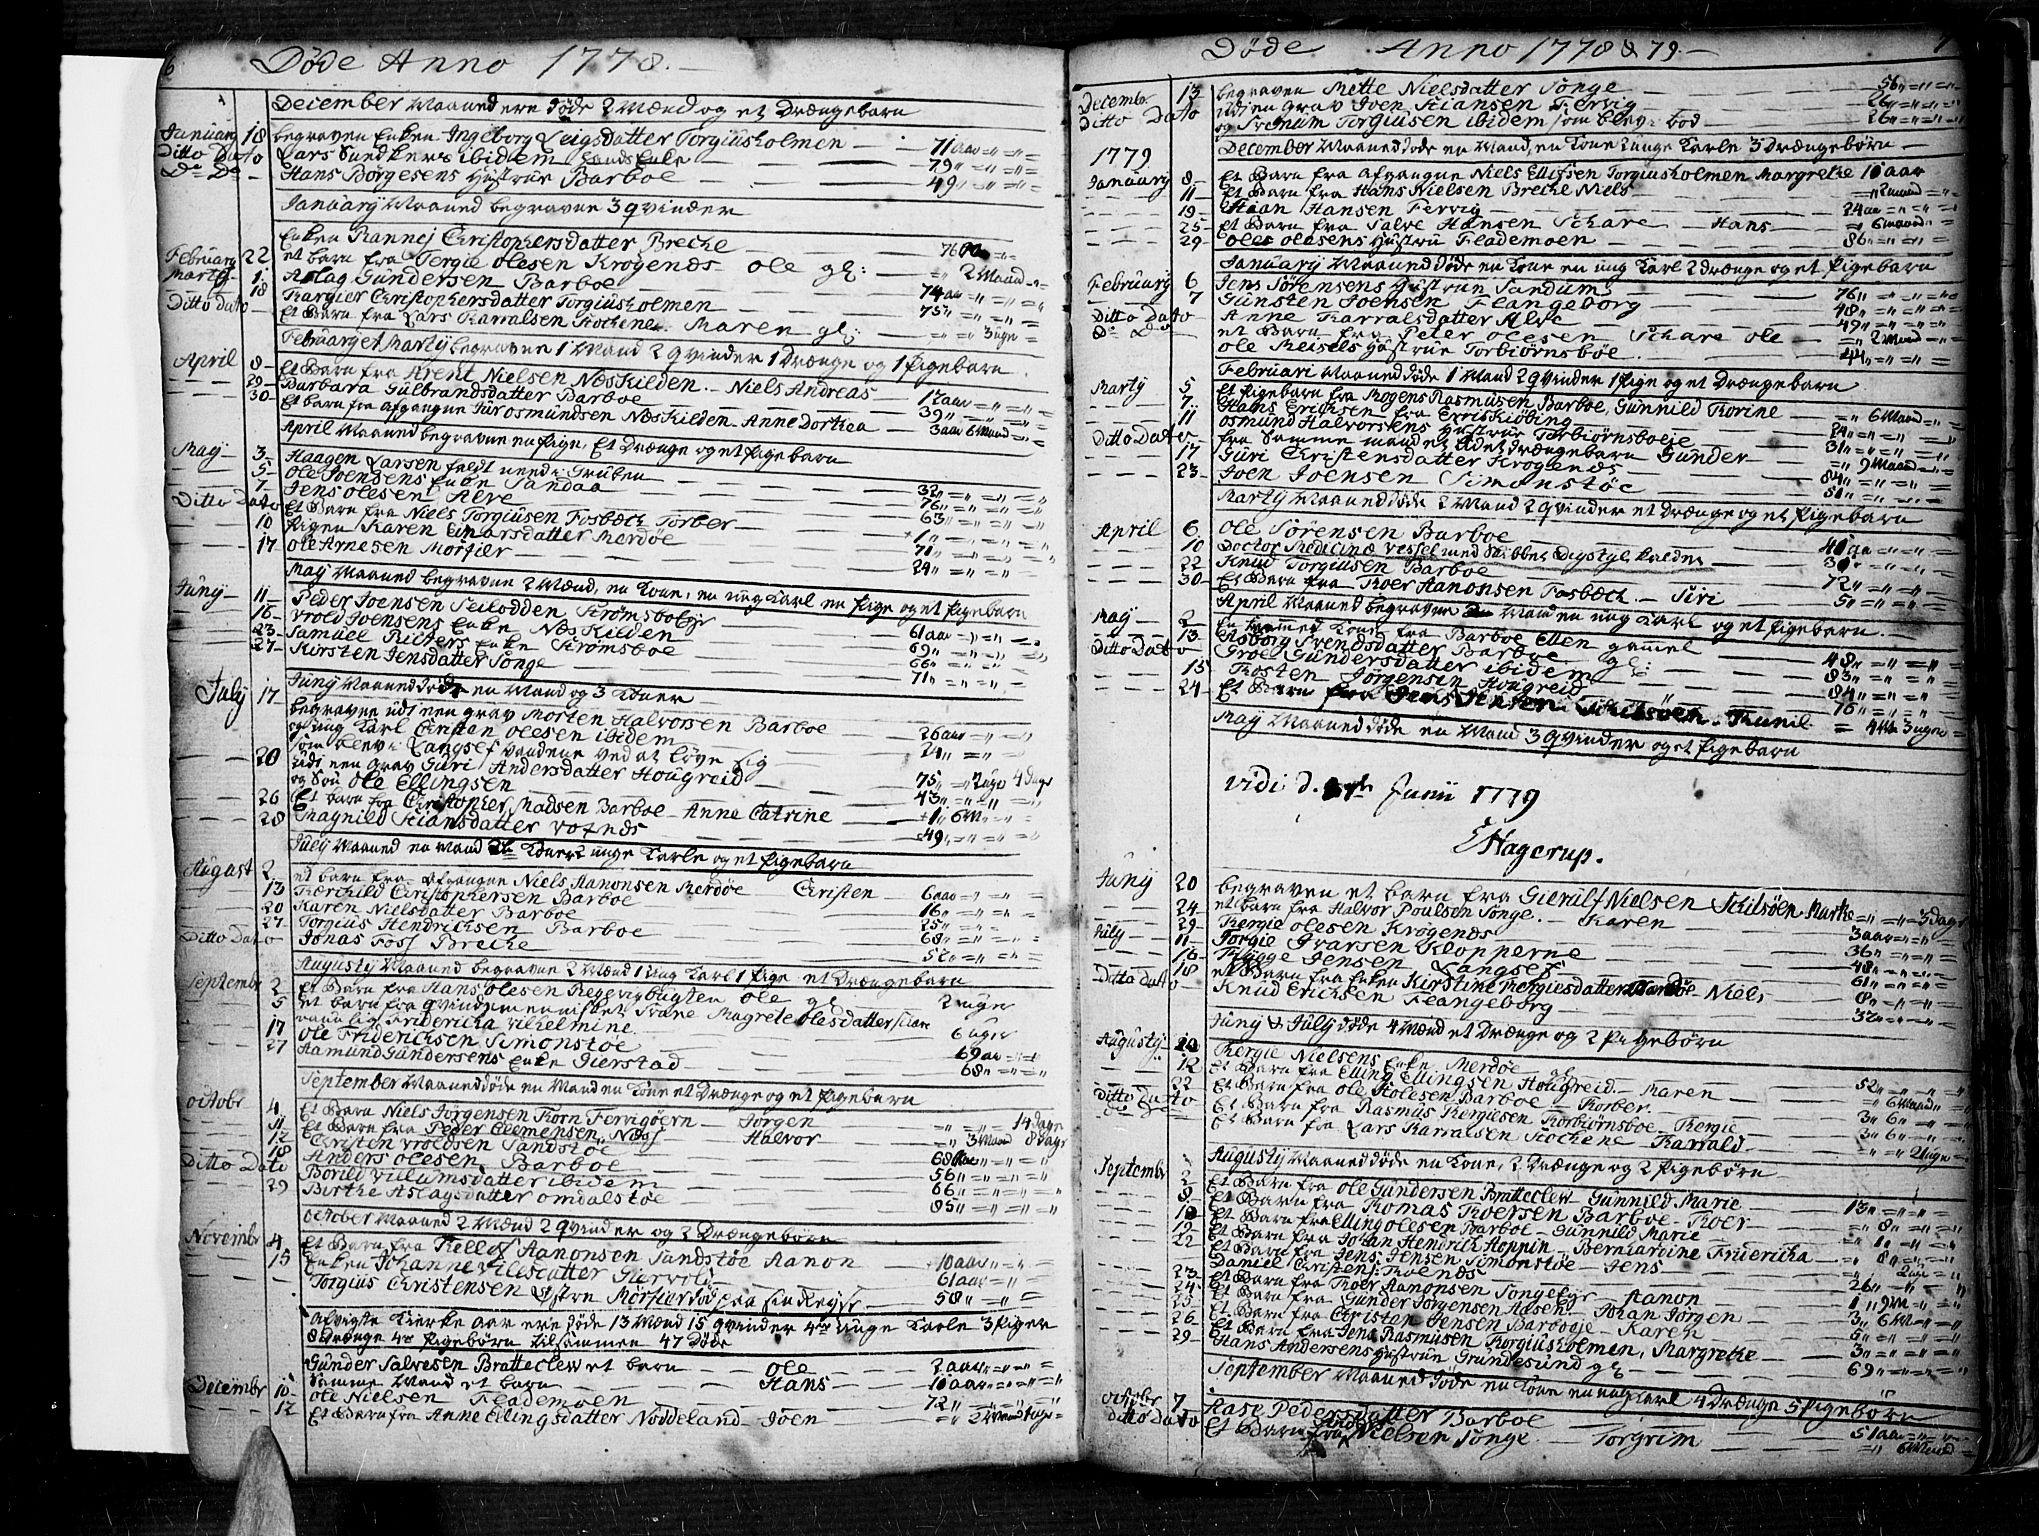 6
Døde Anno 1778.
December Maaned ere døde 2 Mænd og et Drængebarn
January 18 begraven Enken Ingeborg Leigsdatter Torgiusholmen 71 aar
Ditto Dato Lars Sundkers ibidem Enke 79
Do Do Hans Børgesens Hustrue Barboe 49
January Maaned begravne 3 qvinder
Enken Rannej Christophersdatter Breche 76
February 22 et barn fra Tergie Olesen Krøgenes ole gl: 2 Maand
Marty 1 Aslag Gundersen Barboe 74 aar
18 Kargier Christophersdatter Torgiusholmen 75
Ditto Dato Et Barn fra Lars Karralsen Kochene Maren gl: 3 uge
February et Marty begravne 1 Mand 2 qvinder 1 Drænge og 1 Pigebarn
April 8 Et Barn fra Arent Nielsen Næskilden Niels Andreas
29 Barbara Gulbrandsdatter Barboe 12 aar
30 Et barn fra afgangne Osmundsen Næskilden Anne Dorthea 39
April Maaned begravne en Pige, Et Drænge og et Pigebarn 3 aar 6 Maand
May 3 Haagen Larsen faldt need i Gruben
5 Ole Joensens Enke Sandaa 32
7 Jens Olesen Alve 76
Ditto Dato Et Barn fra Niels Torgiusen Fosbæch Torber 63
10 Pigen Karen Einarsdatter Merdøe 1
17 Ole Arnesen Morfier 71
24
May Maaned begravne 2 Mænd, en Kone, en ung Karl en Pige og et Pigebarn
Juny 11 Peder Joensen Seilodden Strømsboe
16 Vrold Joensens Enke Næskilden 61 aar
23 Samuel Ricters Enke Strømsboe 69
27 Kirsten Jensdatter Songe 66
71
Juny Maaned døde en Mand og 3 Koner
July 17 begraven udi een grav Morten Halvorsen Barboe
og ung Karl Ensten Olesen ibidem 26 aar
som blev i Langsef vandene ved at løye sig 24
20 udi een grav Guri Andersdatter Hougreid
og Søn Ole Ellingsen 75 2 uge 4 dags
26 Et barn fra Christopher Madsen Barboe Anne Catrine 43
28 Magnild Stiansdatter 1 6 M
49
July Maaned en Mand Koner 2 unge Karle og et Pigebarn
August 2 et barn fra afgangne Niels Aanonsen Merdøe Christen
13 Kierchild Christophersen Barboe 6 aar
20 Karen Nielsdatter Barboe 16
27 Torgius Hendrichsen Barboe 25
Ditto Dato Jonas Foss Breche 68
52
Augusty Maaned begravne 2 Mænd 1 ung Karl 1 Pige et Drængebarn
Septembr 2 Et Barn fra Hans Olesen Reggevigbugten Ole gl 2 uger
5 et barn fra qvindemennisket Siane Magrete Olesdatter
Friderica Vilhelmine 6 uger
17 Ole Friderichsen Simonstøe
27 Aamund Gundersens Enke Gierstad 69 aar
68
September Maaned døde en Mand en Kone et Drænge og et Pigebarn
Octobr 4 Et Barn Niels Jørgensen Korn Fervigøern Jørgen 14 dage
11 Et Barn fra Peder Clemensen Næss Halvor 3 Maand 8 dage
12 Christen Vroldsen Sandstøe
18 Anders Olesen Barboe 68
Ditto Dato Borild Villumsdatter ibidem 56
29 Birthe Aslagsdatter Omdalstøe 66
85
October Maaned 2 Mænd 2 qvinder og 2 Drængebørn
Novembr 4 Et Barn fra Kellof Aanonsen Sandstøe Aanon 10 aar
15 Enken Johanne Giervold 61 aar
Torgius Christensen Morfier død paa sin Reyse 58
Afvigte Kierke aar ere døde 13 Mænd 15 qvinder 4re Unge Karle 3 Piger
8 Drænge 4re Pigebørn tilsammen 47 Døde
Gunder Salvesen Bratteclew et barn Ole 2 aar
Samme Mand et barn Hans 10 aar
Decembr 10 Ole Nielsen Flademoen 72
12 Et Barn fra Anne Ellingsdatter Nøddeland Joen 2 Maand
Døde Anno 1778 & 79
7
Decembr 13 begraven Mette Nielsdatter Songe 56
Ditto Dato udi en grav Joen Stiansen Fervig 26
og Torgiusen ibidem som blev 26
December Maaned døde en Mand, en Kone 2 unge Karle 3 Drængebørn
1779
January 8 Et Barn fra afgangne Niels Ellifsen Torgiusholmen Margrethe 10 aar
11 Et Barn fra Hans Nielsen Breche Niels 2 maand
19 Hansen Fervig 24 aar
25 Et Barn fra Salve Hansen Schare Hans 6 maand
29 Oles Olesens Hustrue Flademoen 86
January Maaned døde en Kone en ung Karl 2 Drænge og et Pigebarn
February 6 Jens Sørensens Hustrue Sandum 76
7 Gunsten Joensen Flangeborg 48
Ditto Dato Anne Karralsdatter Alve 49
Do Do et Barn fra Peter Olesen Schare Ole 2 Maand
Ole Meisels Hustrue Torbiørnsbøe 44
Februari Maaned døde 1 Mand 2 qvinder 1 Pige og et Drængebarn
Marty 5 Et Pigebarn fra Mogens Rasmusen Barboe, Gunnild Thorine 6 Maand
7 Hans Erichsen fra Erriskiøbing 24
11 Osmund Halvorsens Hustrue Torbiørnsboeje 31
Ditto Dato fra Samme mand et Drængebarn Gunder 9 Maand
17 Guri Christensdatter Krøgenes 84
23 Joen Joensen Simonstøe 51
Marty Maaned døde 2 Mand 2 qvinder et Drænge og et Pigebarn
April 6 Ole Sørensen Barboe
10 Doctor Medicinæ Vessel med Skibbet 40
22 Knud Torgiusen Barboe 30
30 Et Barn fra Thoer Aanonsen Fosbæch Siri 72
5
April Maaned begraven Mand en ung Karl og et Pigebarn
May 2 En Kone fra Barboe Ellen gamel
13 Asborg Svendsdatter Barboe 48
Ditto Dato Groe Gundersdatter ibidem gl: 83
15 Thosten Jørgensen Hougreid 84
24 Et Barn fra Jens Jensen Schilsøen Thunil 76
4 M 3 ugen
May Maaned døde en Mand 3 qvinder og et Pigebarn
Vidi d. Junii 1779
EHagerup.
Juny 20 begraven et barn fra Gierulf Nielsen Schilsøen Marthe 3 dage
24 et barn fra Halvor Poulsen Songe Karen
29 Thergie Olesen Krøgenes 3 aar
July 11 Torgie Ivarsen Klopperne 36
16 Jensen Langsef 48
18 et Barn fra Enken Kirstine Tergiesdatter Niels 61
Ditto Dato Knud Erichsen Flangeborg 8
32
Juny & July døde 4 Mænd et Drænge og 2 Pigebørn
Augusty Thergie Nielsens Enke Merdøe gl
12 Et Barn fra Elling Ellingsen Hougreid Maren 52
22 Et Barn fra Ole Holesen Barboe Thorber 6 Maand
Ditto Dato Et Barn fra Rasmus Thergiesen Torbiørnsboe Thergie 3 6
Et Barn fra Lars Karralsen Kochene Karrald 3 6
2 uge
Augusty Maaned døde en Kone, 2 Drænge og 2 Pigebørn
Septembr 2 Et Barn fra Ole Gundersen Bratteclew Gunnild Marie
8 Et Barn fra Thomas Thoersen Barboe Thoer 13
10 Et Barn fra Elling Olesen Barboe Gunnild Marie 8
12 Et Barn fra Johan Hendrich Hoppin Bernhardine Friderica 1
22 Et Barn fra Jens Jensen Simonstøe Jens 8
Daniel Christensen 2 uge
23 Et Barn fra Thoer Aanonsen Songe Aanon 26
24 Et Barn fra Gunder Jørgensen Johan Jørgen 1 9 M
25 Et Barn fra Christen Jensen Barboe Karen 3 6 M
26 Et Barn fra Jens Rasmusen Torgiusholmen, Margrethe 5
29 Hans Andersens Hustrue Grundesund gl 3
69
September Maaned døde en Kone en ung Karl 4 Drænge 5 Pigebørn
October 7 Aase Pedersdatter Barboe 51 aar
Ditto Dato Et Barn fra Nielsen Songe Torgrim 6 Maand